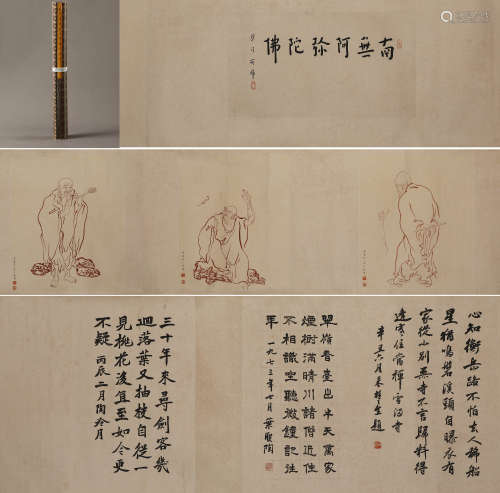 南無阿弥陀佛
心知衡岳路不怕去人稀船
里猶鳴磬溪頭自曝衣有
家從小別無寺不言歸料得
逢寒住當禪雪滿
辛丑六月 題
翠嶺香臺出半天萬家
煙樹滿晴川諸僧近住
不相識坐聽微鐘記往
年 一九七三年七月 葉聖陶
三十年來尋劍客幾
迴落葉又抽枝自從一
見桃花後直至如今更
不疑 丙辰二月陶冷月